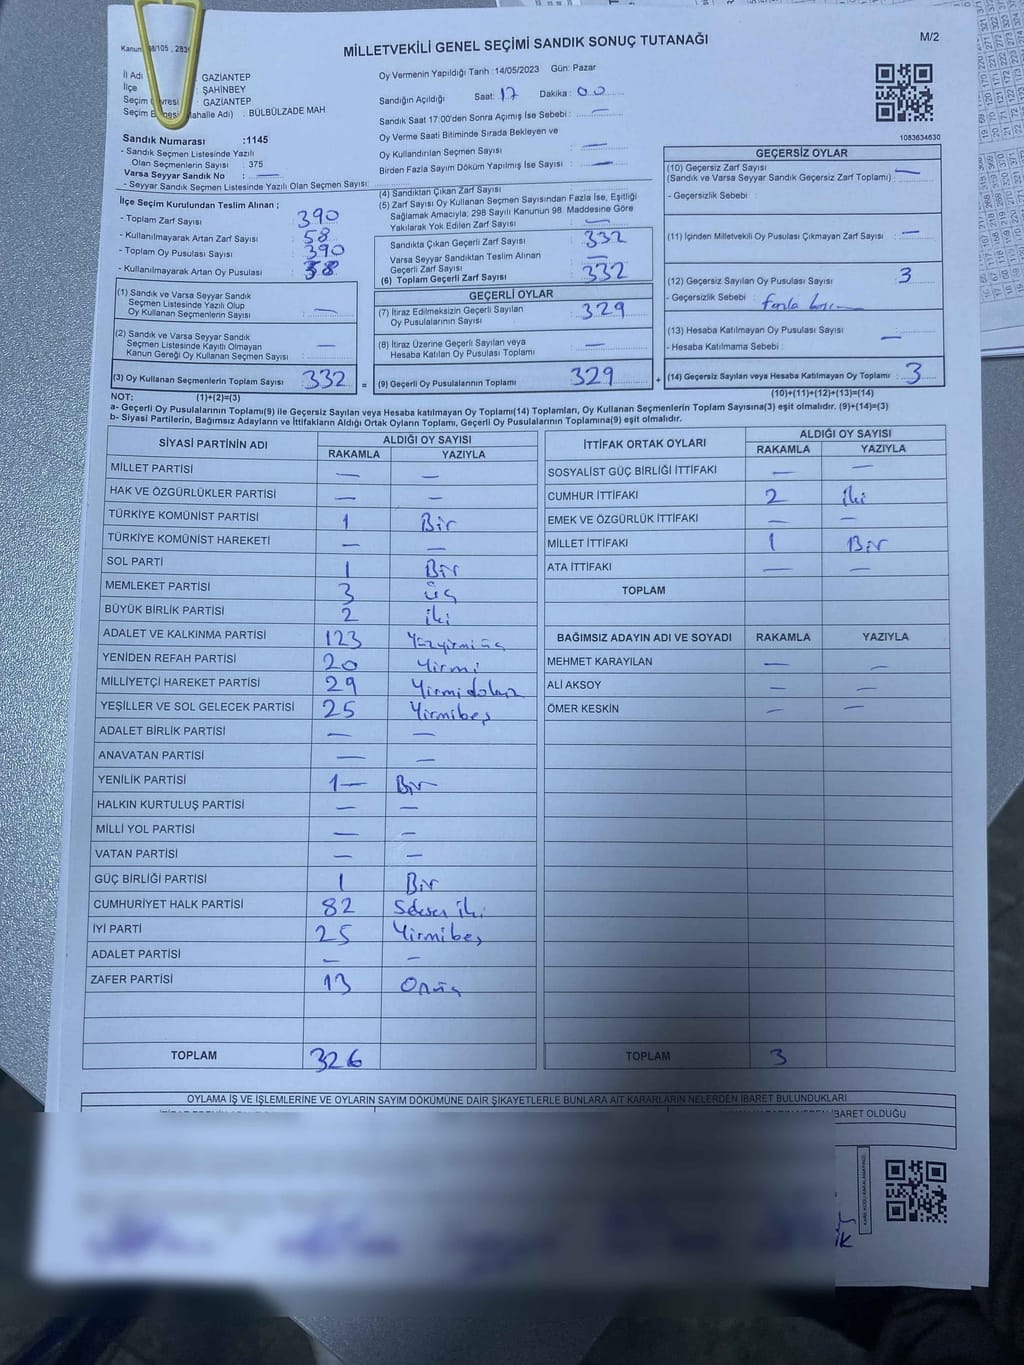 MİLLETVEKİLİ GENEL SEÇİMİ SANDIK SONUÇ TUTANAĞI
M/2
İl Adı GAZİANTEP
İlçe ŞAHİNBEY
Seçim GAZİANTEP
Seçim Mahalle Adı) : BÜLBÜLZADE MAH.
Oy Vermenin Yapıldığı Tarih :14/05/2023 Gün: Pazar
Sandığın Açıldığı Saat: 17 Dakika: 00
Sandık Saat 17:00'den Sonra Açımış İse Sebebi : —
Oy Verme Saati Bitiminde Sırada Bekleyen ve
Oy Kullandırılan Seçmen Sayısı —
Birden Fazla Sayım Döküm Yapılmış İse Sayısı —
1083634630
Sandık Numarası :1145
- Sandık Seçmen Listesinde Yazılı
Olan Seçmenlerin Sayısı : 375
Varsa Seyyar Sandık No : —
- Seyyar Sandık Seçmen Listesinde Yazılı Olan Seçmen Sayısı:
İlçe Seçim Kurulundan Teslim Alınan ;
- Toplam Zarf Sayısı : 390
- Kullanılmayarak Artan Zarf Sayısı : 58
- Toplam Oy Pusulası : 390
- Kullanılmayarak Artan Oy Pusulası : 58
(1) Sandık ve Varsa Seyyar Sandık
Seçmen Listesinde Yazılı Olup
Oy Kullanan Seçmenlerin Sayısı : —
(2) Sandık ve Varsa Seyyar Sandık
Seçmen Listesinde Kayıtlı Olmayan
Kanun Gereği Oy Kullanan Seçmen Sayısı : —
(3) Oy Kullanan Seçmenlerin Toplam Sayısı 332 =
(4) Sandıktan Çıkan Zarf Sayısı
(5) Zarf Sayısı Oy Kullanan Seçmen Sayısından Fazla İse, Eşitliği
Sağlamak Amacıyla; 298 Sayılı Kanunun 98. Maddesine Göre
Yakılarak Yok Edilen Zarf Sayısı : —
Sandıkta Çıkan Geçerli Zarf Sayısı : 332
Varsa Seyyar Sandıktan Teslim Alınan
Geçerli Zarf Sayısı : —
(6) Toplam Geçerli Zarf Sayısı : 332
GEÇERLİ OYLAR
(7) İtiraz Edilmeksizin Geçerli Sayılan
Oy Pusulalarının Sayısı : 329
(8) İtiraz Üzerine Geçerli Sayılan veya
Hesaba Katılan Oy Pusulası Toplamı : —
(9) Geçerli Oy Pusulalarının Toplamı 329 +
GEÇERSİZ OYLAR
(10) Geçersiz Zarf Sayısı
(Sandık ve Varsa Seyyar Sandık Geçersiz Zarf Toplamı) : —
- Geçersizlik Sebebi :
(11) İçinden Milletvekili Oy Pusulası Çıkmayan Zarf Sayısı : —
(12) Geçersiz Sayılan Oy Pusulası Sayısı : 3
- Geçersizlik Sebebi : fazla
(13) Hesaba Katılmayan Oy Pusulası Sayısı : —
- Hesaba Katılmama Sebebi :
(14) Geçersiz Sayılan veya Hesaba Katılmayan Oy Toplamı : 3
NOT: (1)+(2)=(3) (10)+(11)+(12)+(13)=(14)
a- Geçerli Oy Pusulalarının Toplamı(9) ile Geçersiz Sayılan veya Hesaba katılmayan Oy Toplamı(14) Toplamları, Oy Kullanan Seçmenlerin Toplam Sayısına(3) eşit olmalıdır. (9)+(14)=(3)
b- Siyasi Partilerin, Bağımsız Adayların ve İttifakların Aldığı Ortak Oyların Toplamı, Geçerli Oy Pusulalarının Toplamına(9) eşit olmalıdır.
SİYASİ PARTİNİN ADI ALDIĞI OY SAYISI
RAKAMLA YAZIYLA
MİLLET PARTİSİ — —
HAK VE ÖZGÜRLÜKLER PARTİSİ — —
TÜRKİYE KOMÜNİST PARTİSİ 1 Bir
TÜRKİYE KOMÜNİST HAREKETİ — —
SOL PARTİ 1 Bir
MEMLEKET PARTİSİ 3 üç
BÜYÜK BİRLİK PARTİSİ 2 iki
ADALET VE KALKINMA PARTİSİ 123 Yüzyirmiüç
YENİDEN REFAH PARTİSİ 20 Yirmi
MİLLİYETÇİ HAREKET PARTİSİ 29 Yirmidokuz
YEŞİLLER VE SOL GELECEK PARTİSİ 25 Yirmibeş
ADALET BİRLİK PARTİSİ — —
ANAVATAN PARTİSİ — —
YENİLİK PARTİSİ 1— Bir
HALKIN KURTULUŞ PARTİSİ — —
MİLLİ YOL PARTİSİ — —
VATAN PARTİSİ — —
GÜÇ BİRLİĞİ PARTİSİ 1 Bir
CUMHURİYET HALK PARTİSİ 82 Seksen iki
İYİ PARTİ 25 Yirmibeş
ADALET PARTİSİ — —
ZAFER PARTİSİ 13 Onüç
TOPLAM 326
İTTİFAK ORTAK OYLARI ALDIĞI OY SAYISI
RAKAMLA YAZIYLA
SOSYALİST GÜÇ BİRLİĞİ İTTİFAKI — —
CUMHUR İTTİFAKI 2 iki
EMEK VE ÖZGÜRLÜK İTTİFAKI — —
MİLLET İTTİFAKI 1 Bir
ATA İTTİFAKI — —
TOPLAM
BAĞIMSIZ ADAYIN ADI VE SOYADI RAKAMLA YAZIYLA
MEHMET KARAYILAN — —
ALİ AKSOY — —
ÖMER KESKİN — —
TOPLAM 3
OYLAMA İŞ VE İŞLEMLERİNE VE OYLARIN SAYIM DÖKÜMÜNE DAİR ŞİKAYETLERLE BUNLARA AİT KARARLARIN NELERDEN İBARET BULUNDUKLARI
İBARET OLDUĞU